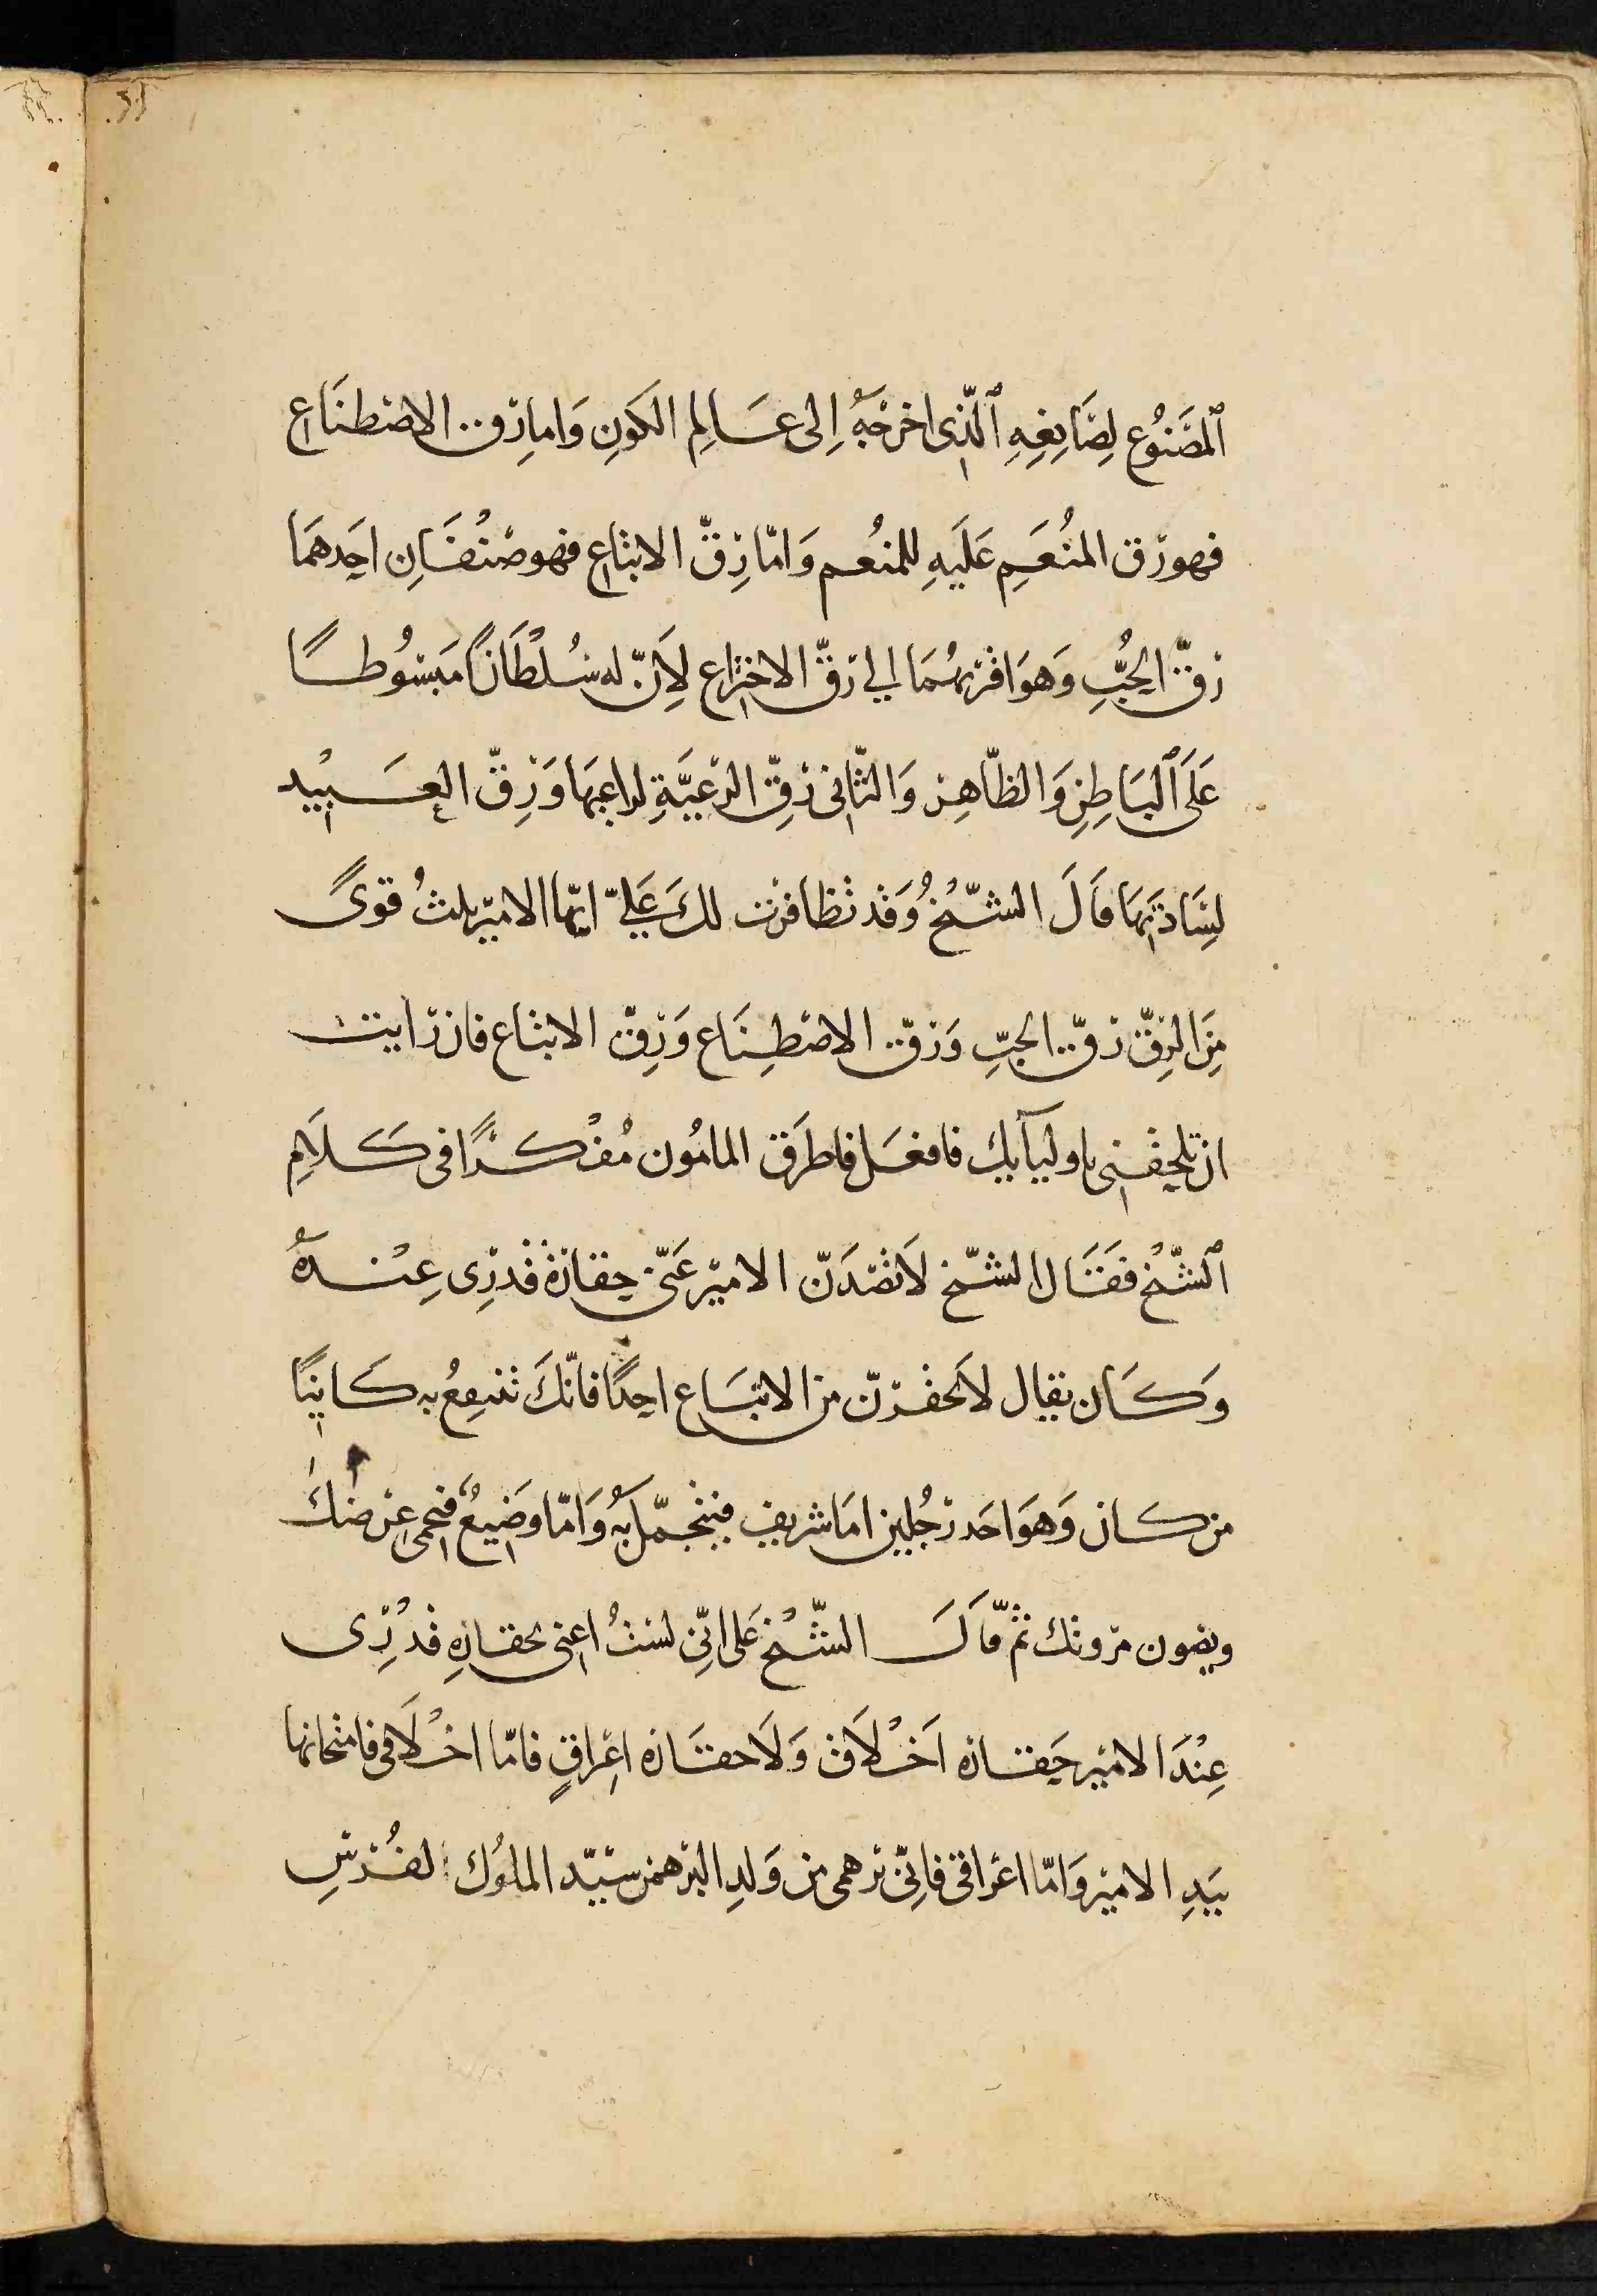 ٱلمَصَنوُعِ لِصَانِعِهِ ٱلّذِى اخرَجَهُ اِلى عَالِمِ الكَونِ وَامارِق الاصْطنَاع
فهورق المنُعَمِ عَلَيهِ للمنُعم وَامّا رِقّ الاتباع فهو صْنُفَانِ احَدهمَا
رقّ الحُبِّ وَهوَ اقربهُمَا الي رقّ الاختراع لِاَنّ له سُلْطَانًا مَبسُوطًا
عَلَى ٱلبَاطِنِ وَالظّاهِر وَالثّانى رقِّ الرّعيَّةِ لراعيهَا وَرِقّ العَبيْد
لِسَادَتِهَا قَالَ الشّيْخُ وَقد تظافرت لكَ عَليّ ايّها الامير ثلثُ قوىً
مِنَ الرِقّ رقّ الحبِّ وَرقّ الاصْطِنَاع وَرِقّ الاتباع فان رايت
ان تلحقنى باوليآيك فافعَل فاطرَق المامُون مُفْكرًا فى كَلَامِ
ٱلشّيْخ فَقَال الشّيخ لَا تصْدَنّ الامير عَنّى حقارة قدْرِى عِنْدهُ
وَكَان يقال لَا تحقرنّ من الاتبَاع احِدًا فانّكَ تنتفِعُ به كَاينًا
من كَان وَهوَ احَد رَجُلين امَا شريف فيتجمّل بهُ وَامّا وَضِيعٌ فيحمى عِرضكَ
ويصون مروتك ثمّ قاَلَ الشّيْخ عَلى انّى لستُ اعنى بحقارهِ قدْرِى
عِنْدَ الامير حَقاره اَخْلَاق وَلَا حقَاره اعْراقٍ فامّا اخْلَاقى فامتحانها
بيَدِ الامير وَامّا اعراقى فانّى برهمى من وَلدِ البرهمن سيّد الملوُك لفُرسِ